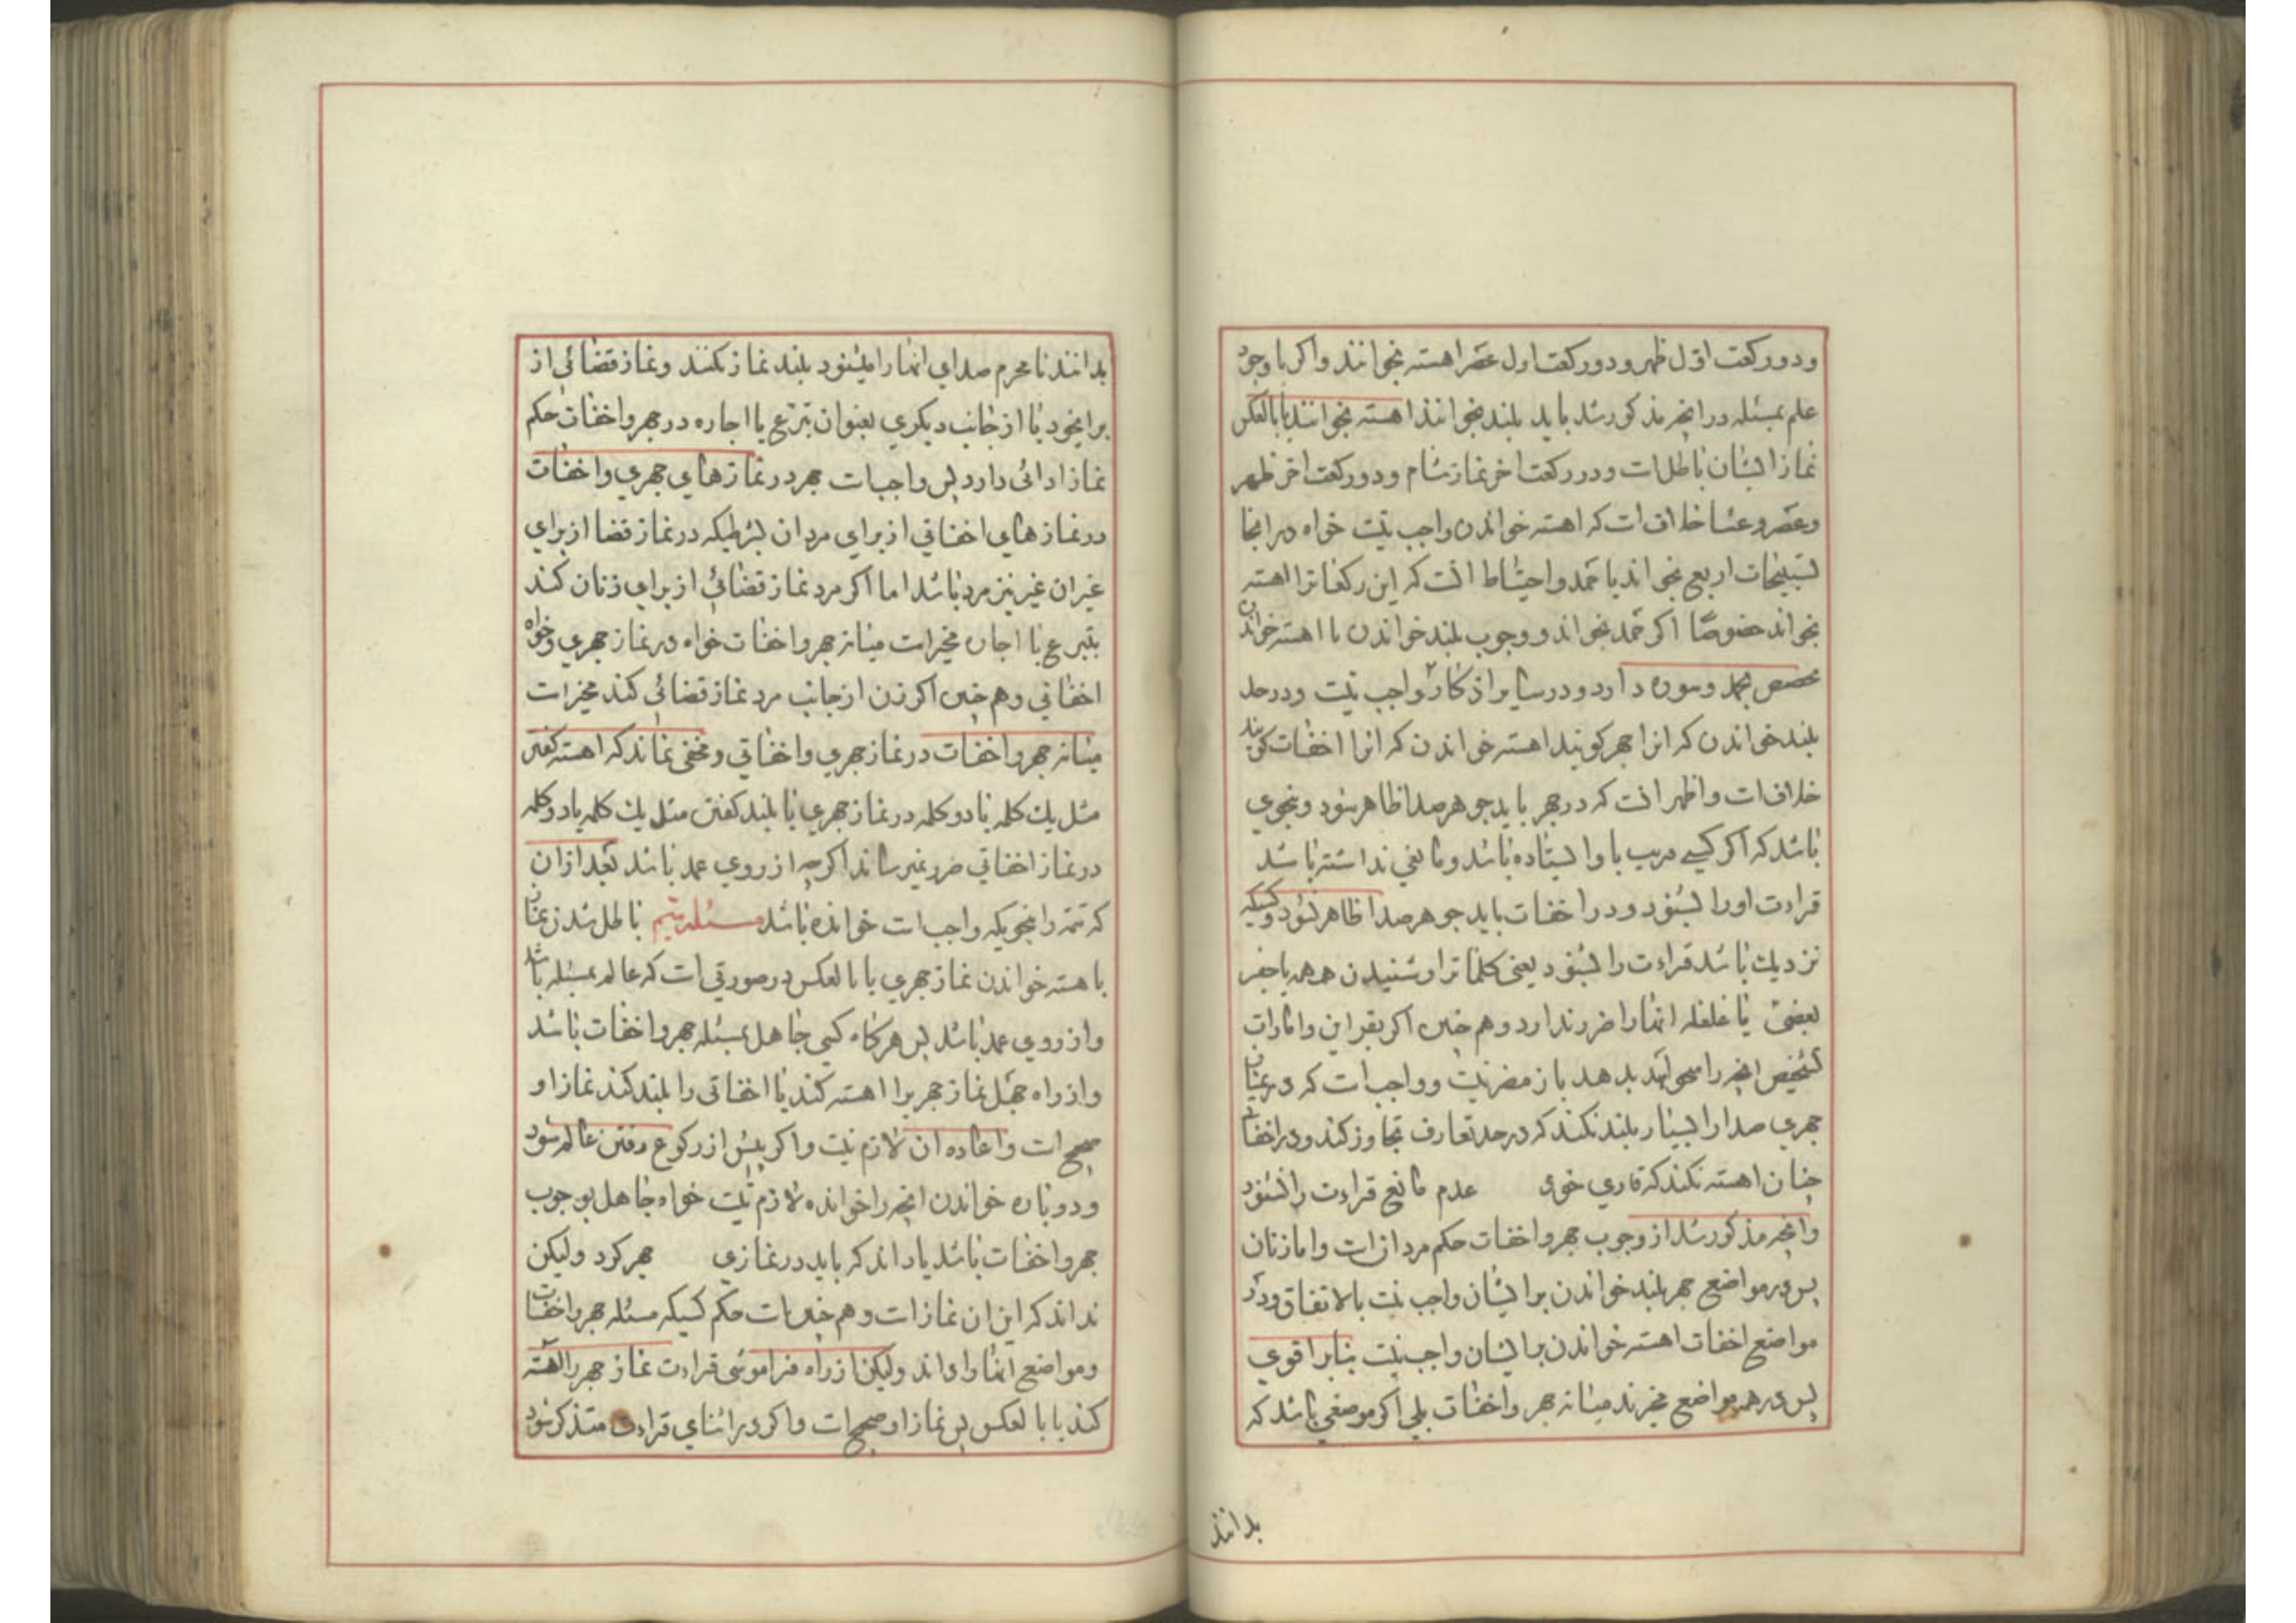 ودو ركعت اول ظهر ودو ركعت اول عصر اهسته بخوانند واكر با وجود
علم بمسئله در انچه مذكور شد بايد بلند بخوانند اهسته بخوانند يا بالعكس
نماز ايشان باطل است ودر ركعت اخر نماز شام ودو ركعت اخر ظهر
وعصر وعشا خلاف است كه اهسته خواندن واجب نيست خواه در انجا
تسبيحات اربع بخواند يا حمد واحتياط انست كه اين ركعات را اهسته
بخواند خصوصا اكر حمد بخواند ووجوب بلند خواندن يا اهسته خواندن
مخصص بحمد وسوره دارد ودر ساير اذكار واجب نيست ودر حد
بلند خواندن كه انرا جهر كويند اهسته خواندن كه انرا اخفات كويند
خلاف است واظهر انست كه در جهر بايد جوهر صدا ظاهر شود وبنحوي
باشد كه اكر كسي قريب با او ايستاده باشد ومانعي نداشته باشد
قراءت او را بشنود ودر اخفات بايد جوهر صدا ظاهر نشود وكسيكه
نزديك باشد قراءت را نشنود يعني كلمات را وشنيدن همهمه يا
بعضي يا غلغله انها را ضرر ندارد وهم چنين اكر بقراين وامارات
تشخيص انچه را ميخواند بدهد باز مضر نيست وواجب است كه در نماز
جهري صدا را بسيار بلند نكند كه در حد تعارف تجاوز كند ودر اخفاتي
چنان اهسته نكند كه قاري خود عدم مانع قراءت را نشنود
وانچه مذكور شد از وجوب جهر واخفات حكم مردان است واما زنان
پس در مواضع جهر بلند خواندن بر ايشان واجب نيست بالاتفاق ودر
مواضع اخفات اهسته خواندن بر ايشان واجب نيست بنابر اقوي
پس در همه مواضع مخيرند ميانه جهر واخفات بلي اكر موضعي باشد كه
بدانند
بدانند نامحرم صداي انها را ميشنود بلند نماز نكنند ونماز قضائي از
براي خود يا از جانب ديكري بعنوان تبرع يا اجاره در جهر واخفات حكم
نماز ادائي دارد پس واجب است جهر در نماز هاي جهري واخفات
در نماز هاي اخفاتي از براي مردان بشرطيكه در نماز قضا از براي
غير ان غير نيز مرد باشد اما اكر مرد نماز قضائي از براي زنان كند
بتبرع يا اجاره مخير است ميانه جهر واخفات خواه در نماز جهري وخواه
اخفاتي وهم چنين اكر زن از جانب مرد نماز قضائي كند مخير است
ميانه جهر واخفات در نماز جهري واخفاتي ومخفي نماند كه اهسته كفتن
مثل يك كلمه يا دو كلمه در نماز جهري يا بلند كفتن مثل يك كلمه يا دو كلمه
در نماز اخفاتي ضرر نميرساند اكر چه از روي عمد باشد بعد از ان
كه تتمه را بنحويكه واجب است خوانده باشد مسئله باطل شدن نماز
باهسته خواندن نماز جهري يا بالعكس در صورتي است كه عالم بمسئله باشد
واز روي عمد باشد پس هركاه كسي جاهل بمسئله جهر واخفات باشد
واز راه جهل نماز جهر يرا اهسته كند يا اخفاتي را بلند كند نماز او
صحيح است واعاده ان لازم نيست واكر پيش از ركوع رفتن عالم شود
ودوباره خواندن انچه را خوانده لازم نيست خواه جاهل بوجوب
جهر واخفات باشد يا داند كه بايد در نمازي جهر كرد وليكن
نداند كه اين ان نماز است وهم چنين است حكم كسيكه مسئله جهر واخفات
ومواضع انها را داند وليكن از راه فراموشي قراءت نماز جهر را اهسته
كند يا بالعكس پس نماز او صحيح است واكر در اثناي قراءت متذكر شود